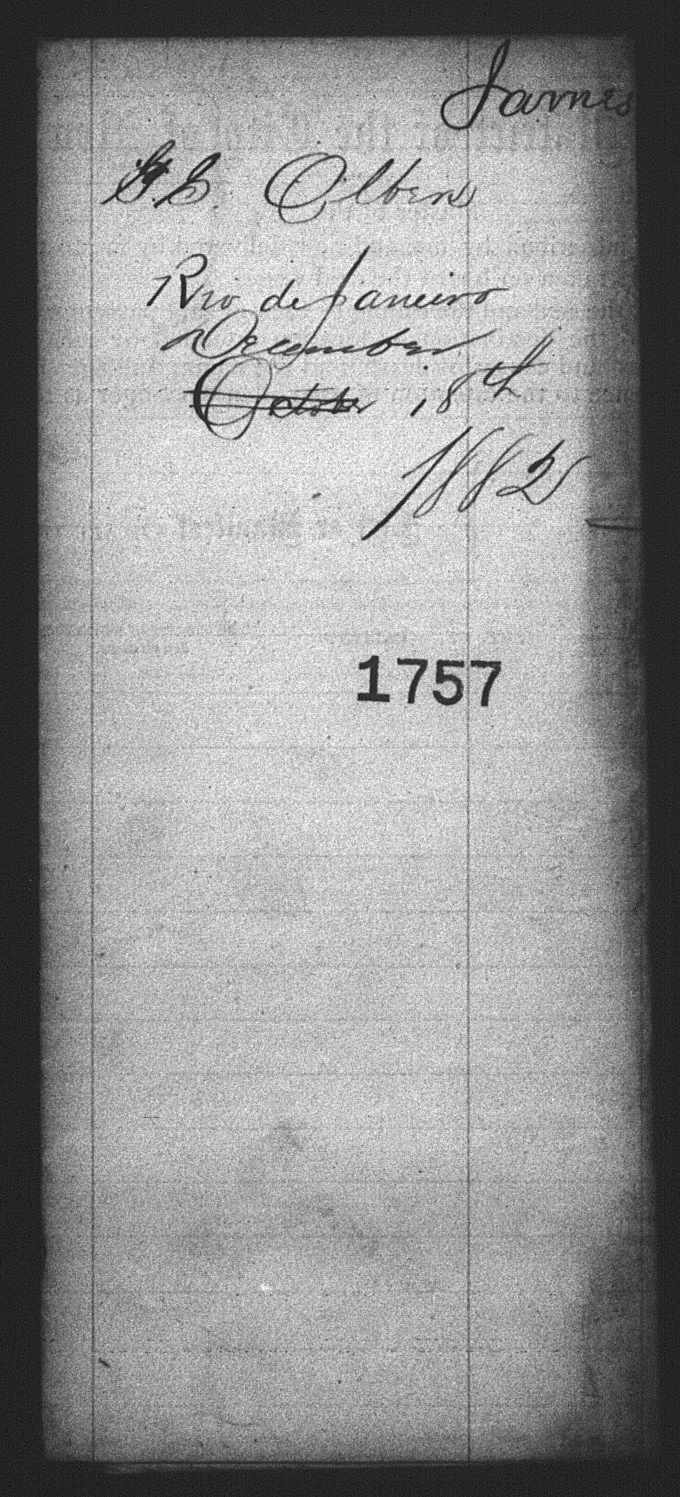 James
G. C. Olben
Rio de Janeiro
December
October 18th
1882
1757